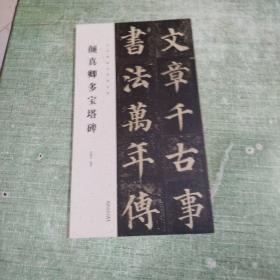 文章千古事
書法萬年傳
颜真卿多宝塔碑